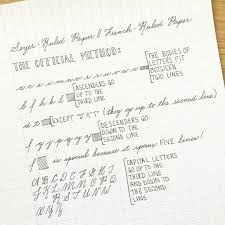 Seyes-Ruled Paper // French-Ruled Paper
THE OFFICIAL METHOD:
a c e i m n o r s u v w x z THE BODIES OF
LETTERS FIT
BETWEEN
TWO LINES
b f h k l ASCENDERS GO
UP TO THE
THIRD LINE
d t EXCEPT "D" "T" (they go up to the second line)
f g j p q y z DESCENDERS GO
DOWN TO THE
SECOND LINE
f is special because it spans FIVE lines!
A B C D E F G CAPITAL LETTERS
H I J K L M GO UP TO THE
N O P Q R S T THIRD LINE
U V W X AND DOWN TO
Y Z THE SECOND
LINE